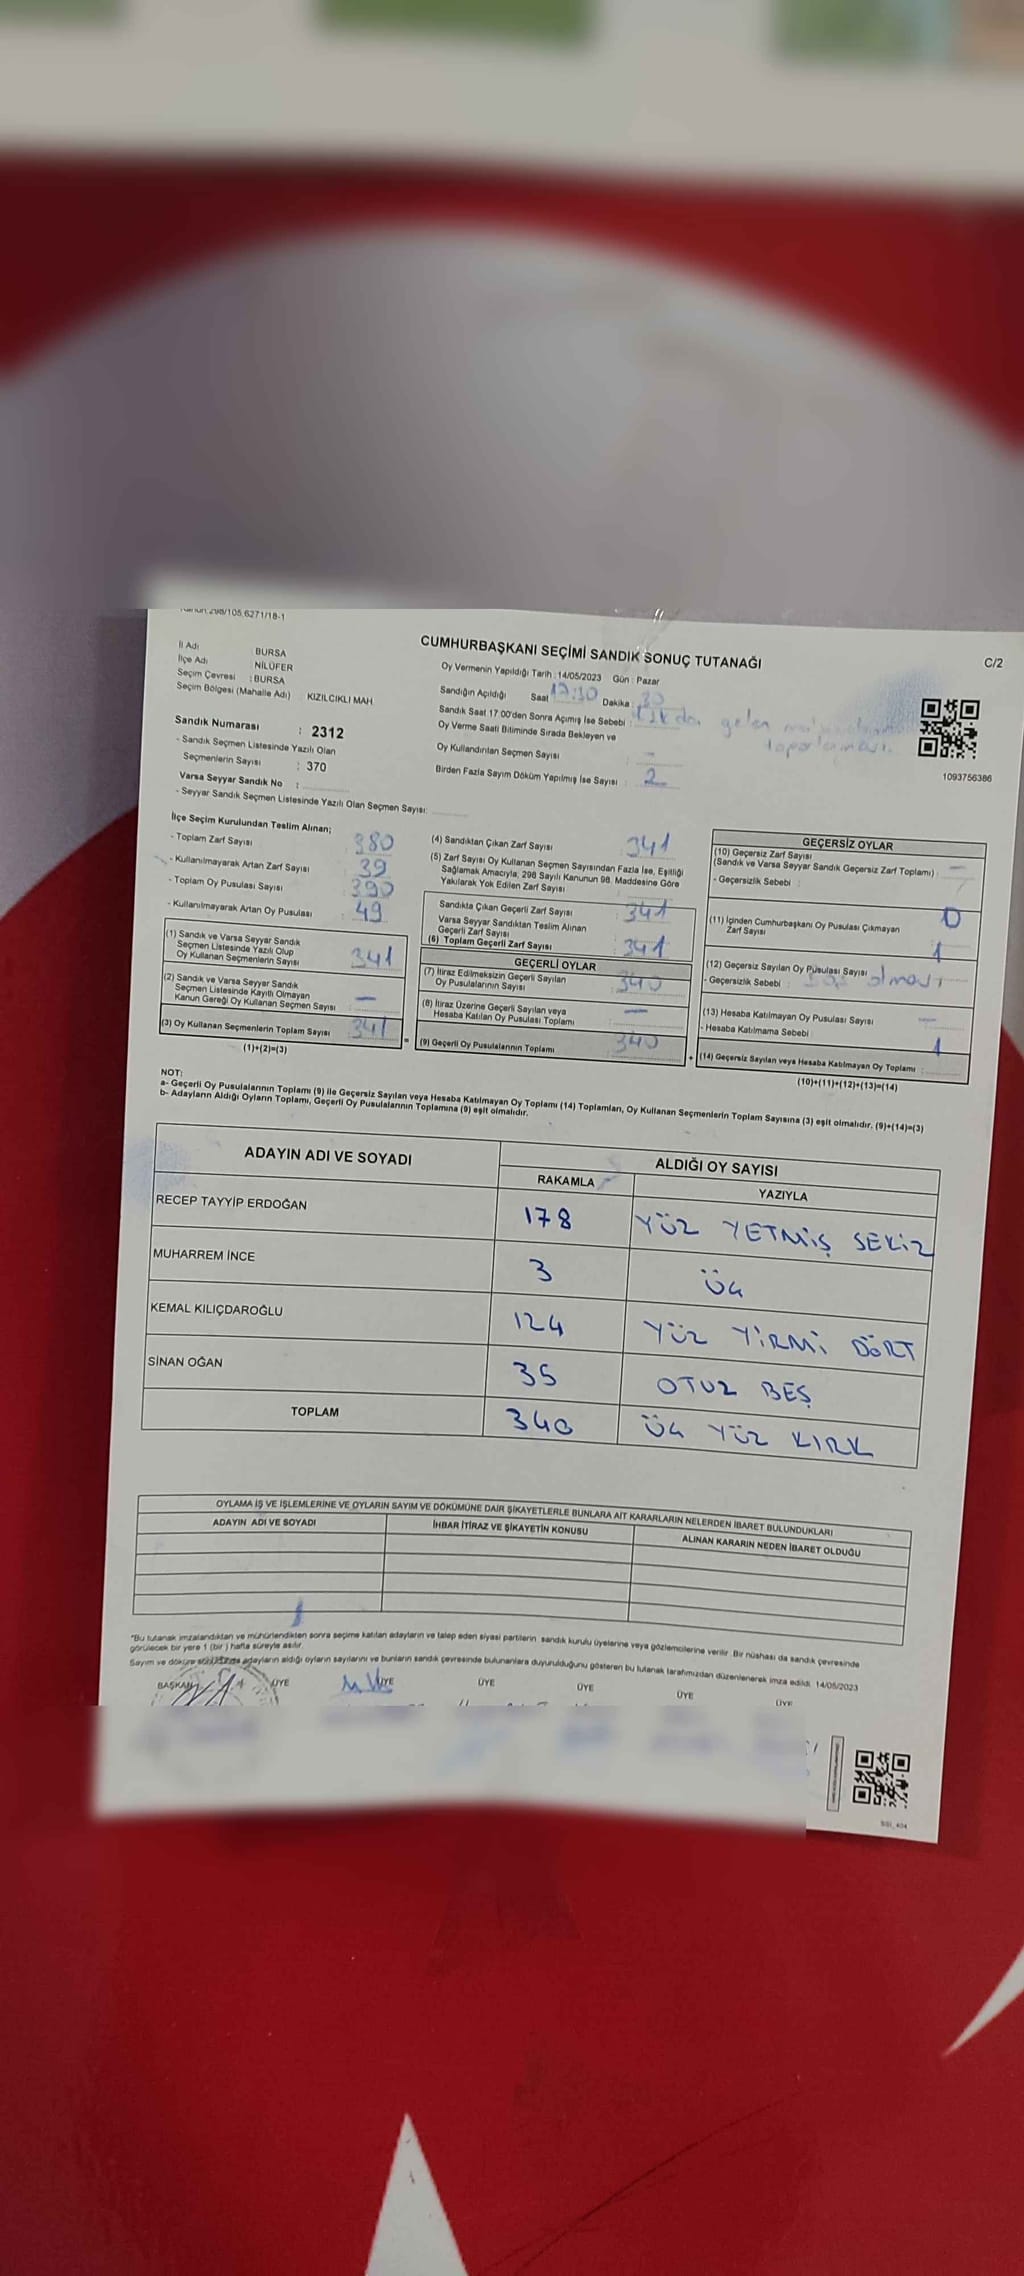 CUMHURBAŞKANI SEÇİMİ SANDIK SONUÇ TUTANAĞI
C/2
İl Adı BURSA
İlçe Adı NİLÜFER
Seçim Çevresi : BURSA
Seçim Bölgesi (Mahalle Adı) KIZILCIKLI MAH.
Oy Vermenin Yapıldığı Tarih : 14/05/2023 Gün : Pazar
Sandığın Açıldığı Saat 17:30 Dakika : 30
Sandık Saat 17:00'den Sonra Açımış İse Sebebi : gelen
Oy Verme Saati Bitiminde Sırada Bekleyen ve
Oy Kullandırılan Seçmen Sayısı : -
Birden Fazla Sayım Döküm Yapılmış İse Sayısı : 2
1093756386
Sandık Numarası : 2312
- Sandık Seçmen Listesinde Yazılı Olan
Seçmenlerin Sayısı : 370
Varsa Seyyar Sandık No :
- Seyyar Sandık Seçmen Listesinde Yazılı Olan Seçmen Sayısı:
İlçe Seçim Kurulundan Teslim Alınan;
- Toplam Zarf Sayısı : 380
- Kullanılmayarak Artan Zarf Sayısı : 39
- Toplam Oy Pusulası Sayısı : 390
- Kullanılmayarak Artan Oy Pusulası : 49
(1) Sandık ve Varsa Seyyar Sandık
Seçmen Listesinde Yazılı Olup
Oy Kullanan Seçmenlerin Sayısı : 341
(2) Sandık ve Varsa Seyyar Sandık
Seçmen Listesinde Kayıtlı Olmayan
Kanun Gereği Oy Kullanan Seçmen Sayısı : -
(3) Oy Kullanan Seçmenlerin Toplam Sayısı : 341
(1)+(2)=(3)
(4) Sandıktan Çıkan Zarf Sayısı : 341
(5) Zarf Sayısı Oy Kullanan Seçmen Sayısından Fazla İse, Eşitliği
Sağlamak Amacıyla, 298 Sayılı Kanunun 98. Maddesine Göre
Yakılarak Yok Edilen Zarf Sayısı :
Sandıkta Çıkan Geçerli Zarf Sayısı : 341
Varsa Seyyar Sandıktan Teslim Alınan
Geçerli Zarf Sayısı :
(6) Toplam Geçerli Zarf Sayısı : 341
GEÇERLİ OYLAR
(7) İtiraz Edilmeksizin Geçerli Sayılan
Oy Pusulalarının Sayısı : 340
(8) İtiraz Üzerine Geçerli Sayılan veya
Hesaba Katılan Oy Pusulası Toplamı : -
(9) Geçerli Oy Pusulalarının Toplamı : 340
GEÇERSİZ OYLAR
(10) Geçersiz Zarf Sayısı
(Sandık ve Varsa Seyyar Sandık Geçersiz Zarf Toplamı) : -
- Geçersizlik Sebebi :
(11) İçinden Cumhurbaşkanı Oy Pusulası Çıkmayan
Zarf Sayısı : 0
(12) Geçersiz Sayılan Oy Pusulası Sayısı : 1
- Geçersizlik Sebebi : olması
(13) Hesaba Katılmayan Oy Pusulası Sayısı : -
- Hesaba Katılmama Sebebi :
(14) Geçersiz Sayılan veya Hesaba Katılmayan Oy Toplamı : 1
(10)+(11)+(12)+(13)=(14)
NOT:
a- Geçerli Oy Pusulalarının Toplamı (9) ile Geçersiz Sayılan veya Hesaba Katılmayan Oy Toplamı (14) Toplamları, Oy Kullanan Seçmenlerin Toplam Sayısına (3) eşit olmalıdır. (9)+(14)=(3)
b- Adayların Aldığı Oyların Toplamı, Geçerli Oy Pusulalarının Toplamına (9) eşit olmalıdır.
ADAYIN ADI VE SOYADI ALDIĞI OY SAYISI
RAKAMLA YAZIYLA
RECEP TAYYİP ERDOĞAN 178 YÜZ YETMİŞ SEKİZ
MUHARREM İNCE 3 ÜÇ
KEMAL KILIÇDAROĞLU 124 YÜZ YİRMİ DÖRT
SİNAN OĞAN 35 OTUZ BEŞ
TOPLAM 340 ÜÇ YÜZ KIRK
OYLAMA İŞ VE İŞLEMLERİNE VE OYLARIN SAYIM VE DÖKÜMÜNE DAİR ŞİKAYETLERLE BUNLARA AİT KARARLARIN NELERDEN İBARET BULUNDUKLARI
ADAYIN ADI VE SOYADI İHBAR İTİRAZ VE ŞİKAYETİN KONUSU ALINAN KARARIN NEDEN İBARET OLDUĞU
*Bu tutanak imzalandıktan ve mühürlendikten sonra seçime katılan adayların ve talep eden siyasi partilerin sandık kurulu üyelerine veya gözlemcilerine verilir. Bir nüshası da sandık çevresinde
görülecek bir yere 1 (bir) hafta süreyle asılır.
Sayım ve döküm adayların aldığı oyların sayılarını ve bunların sandık çevresinde bulunanlara duyurulduğunu gösteren bu tutanak tarafımızdan düzenlenerek imza edildi. 14/05/2023
BAŞKAN ÜYE ÜYE ÜYE ÜYE ÜYE ÜYE